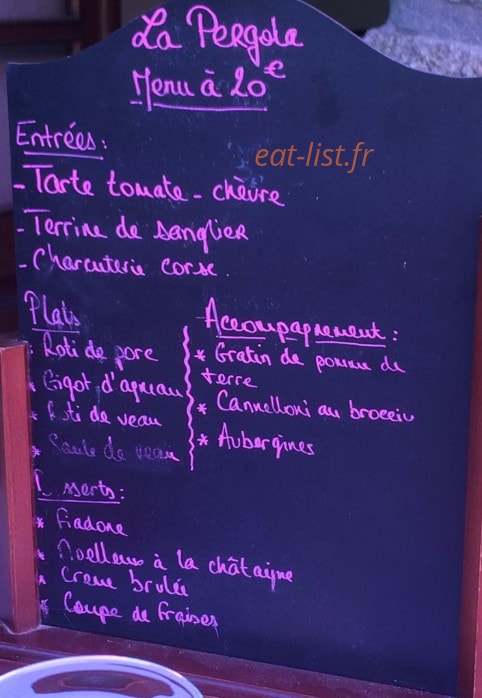 La Pergola
Menu à 20€
Entrées:
eat-list.fr
- Tarte tomate - chèvre
- Terrine de sanglier
- Charcuterie corse.
Plats
Roti de porc
Gigot d'agneau
Roti de veau
* Sauté de veau
Accompagnement:
* Gratin de pomme de
terre
* Cannelloni au brocciu
* Aubergines
Desserts:
* Fiadone
* Moelleux à la châtaigne
* Creme brulée
* Coupe de fraises